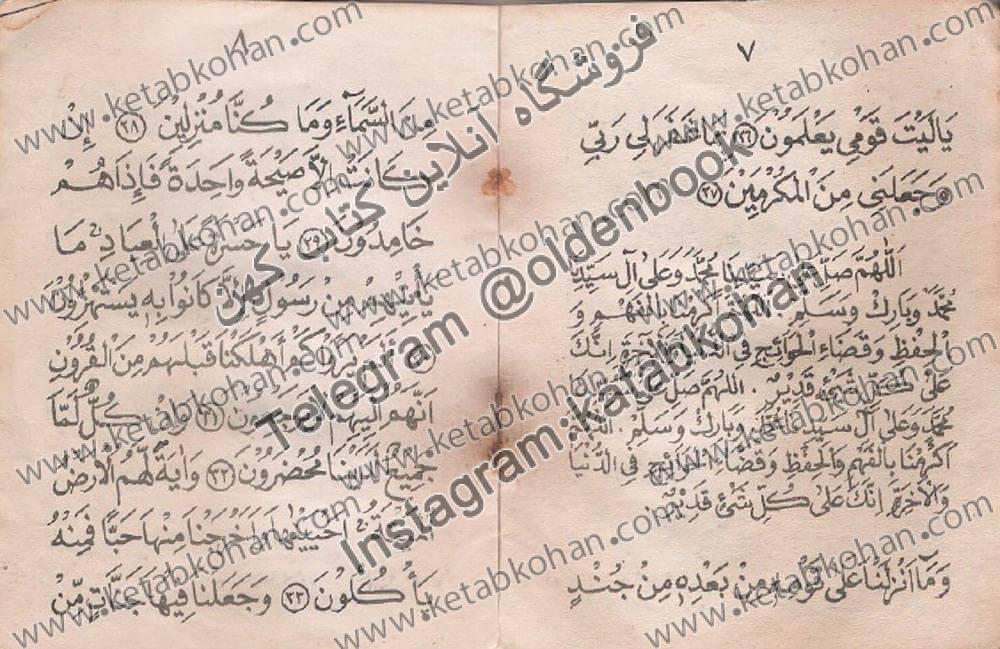 ٧
يَالَيْتَ قَوْمِي يَعْلَمُونَ ﴿٢٦﴾ بِمَا غَفَرَ لِي رَبِّي
وَجَعَلَنِي مِنَ الْمُكْرَمِيْنَ ﴿٢٧﴾
اَللّٰهُمَّ صَلِّ عَلَى سَيِّدِنَا مُحَمَّدٍ وَعَلَى آلِ سَيِّدِنَا
مُحَمَّدٍ وَبَارِكْ وَسَلِّمْ . اَللّٰهُمَّ اَكْرِمْنَا بِالْفَهْمِ وَ
الْحِفْظِ وَقَضَاءِ الْحَوَائِجِ فِي الدُّنْيَا وَالْآخِرَةِ اِنَّكَ
عَلَى كُلِّ شَيْءٍ قَدِيْرٌ . اَللّٰهُمَّ صَلِّ عَلَى سَيِّدِنَا
مُحَمَّدٍ وَعَلَى آلِ سَيِّدِنَا مُحَمَّدٍ وَبَارِكْ وَسَلِّمْ . اَللّٰهُمَّ
اَكْرِمْنَا بِالْفَهْمِ وَالْحِفْظِ وَقَضَاءِ الْحَوَائِجِ فِي الدُّنْيَا
وَالْآخِرَةِ اِنَّكَ عَلَى كُلِّ شَيْءٍ قَدِيْرٌ
وَمَا اَنْزَلْنَا عَلَى قَوْمِهِ مِنْ بَعْدِهِ مِنْ جُنْدٍ
٨
مِنَ السَّمَآءِ وَمَا كُنَّا مُنْزِلِيْنَ ﴿٢٨﴾ اِنْ
كَانَتْ اِلَّا صَيْحَةً وَاحِدَةً فَاِذَا هُمْ
خَامِدُوْنَ ﴿٢٩﴾ يَا حَسْرَةً عَلَى الْعِبَادِ مَا
يَأْتِيْهِمْ مِنْ رَسُوْلٍ اِلَّا كَانُوْا بِهِ يَسْتَهْزِؤُنَ
﴿٣٠﴾ اَلَمْ يَرَوْا كَمْ اَهْلَكْنَا قَبْلَهُمْ مِنَ الْقُرُوْنِ
اَنَّهُمْ اِلَيْهِمْ لَا يَرْجِعُوْنَ ﴿٣١﴾ وَاِنْ كُلٌّ لَمَّا
جَمِيْعٌ لَدَيْنَا مُحْضَرُوْنَ ﴿٣٢﴾ وَاٰيَةٌ لَهُمُ الْاَرْضُ
الْمَيْتَةُ اَحْيَيْنَاهَا وَاَخْرَجْنَا مِنْهَا حَبًّا فَمِنْهُ
يَأْكُلُوْنَ ﴿٣٣﴾ وَجَعَلْنَا فِيْهَا جَنَّاتٍ مِّنْ
فروشگاه آنلاین کتاب کهن
Telegram @oldenbook
Instagram:katabkohan
www.ketabkohan.com